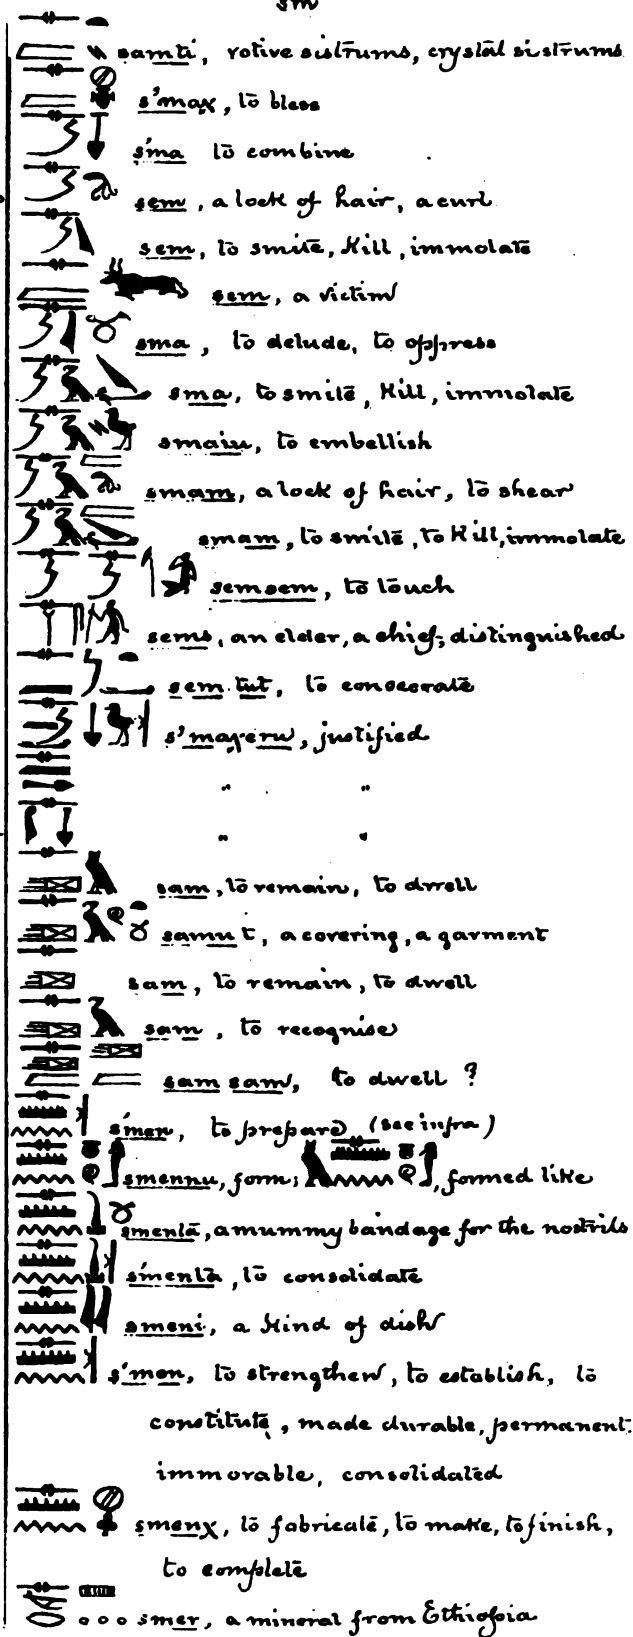 sm
samti, votive sistrums, crystal sistrums
s'maχ, to bless
s'ma to combine
sem, a lock of hair, a curl
sem, to smite, kill, immolate
sem, a victim
sma, to delude, to oppress
sma, to smite, kill, immolate
smaiu, to embellish
smam, a lock of hair, to shear
smam, to smite, to kill, immolate
semsem, to touch
sems, an elder, a chief; distinguished
sem tut, to consecrate
s'maχeru, justified
" "
" "
sam, to remain, to dwell
samu t, a covering, a garment
sam, to remain, to dwell
sam, to recognise
sam sam, to dwell ?
s'men, to prepare (see infra)
smennu, form; , formed like
smentā, a mummy bandage for the nostrils
s'menta, to consolidate
smeni, a kind of dish
s'men, to strengthen, to establish, to
constitute, made durable, permanent
immovable, consolidated
smenχ, to fabricate, to make, to finish,
to complete
smer, a mineral from Ethiopia